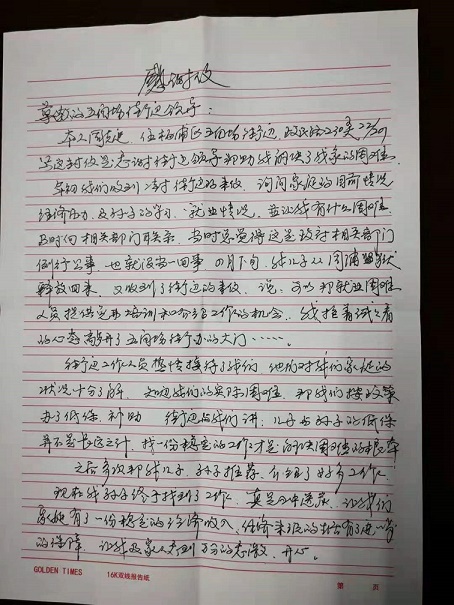 感谢信
尊敬的五角场街道领导:
本人周 ,住杨浦区五角场街道
写这封信是感谢街道领导帮助我解决了我家的困难
年初我们收到一封街道的来信 询问家庭的目前情况
经济 及孙子的学习、就业情况,并让我有什么困难
及时向相关部门联系,当时总觉得这是政府相关部门
例行公事,也就没当一回事 月下旬,我儿子从周浦监狱
释放回来,又收到了街道的来信,说:可以帮就业困难
人员提供免费培训和介绍工作的机会,我抱着试试看
的心态离开了五角场街办的大门……。
街道工作人员热情接待了我们 他们对我们家庭的
状况十分了解,知道我们的实际困难,帮我们按政策
办了低保、补助 街道与我们讲:儿子与孙子的低保
并不是长远之计,找一份稳定的工作才是解决困难的根本
之后多次帮我儿子、孙子推荐、介绍了好多工作。
现在我孙子终于找到了工作,真是 ,让我们
家庭有了一份稳定的经济收入、经济来源的 有了进一步
的保障,让我及家人感到万分的感激、开心。
GOLDEN TIMES 16K双线报告纸 第 页